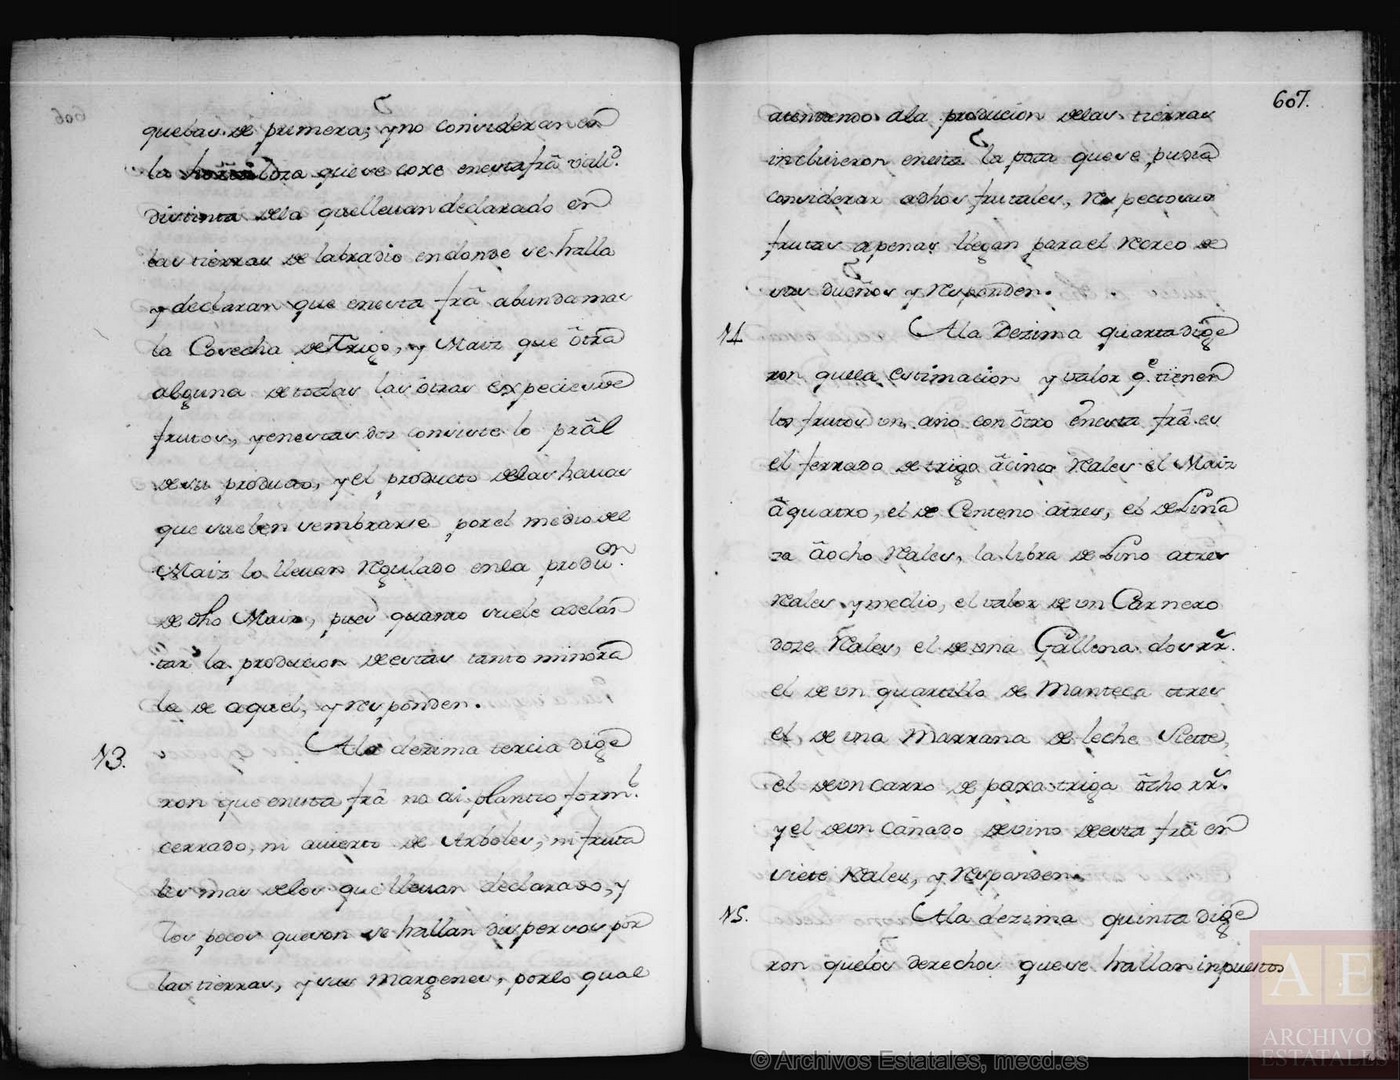 que las de primera; y no consideran en
la loza que se coxe en esta frâ valid.
distinta dela que llevan declarado en
las tierras de labradio en donde se halla
y declaran que en esta frâ abunda mas
la Cosecha de Trigo, y Maiz que ôtra
alguna de todas las ôtras expecies de
frutos, y en estas dos consiste lo prâl
de su producto, y el producto delas havas
que suelen sembrarse por el medio del
Maiz lo llevan Rgulado en la produon.
de dho Maiz, pues quanto suele adelan
tar la producion de estas tanto minora
la de aquel, y Responden.
13. Ala dezima tercia dige
ron que en esta frâ no ai plantio forml.
cerrado, ni avierto de Arboles, ni fruta
les mas delos que llevan declarado, y
los pocos que son se hallan dispersos por
las tierras, y sus Margenes, por lo qual
607.
atendiendo ala producion delas tierras
incluieron en esta la poca que se pudia
considerar a dhos frutales, Respecto sus
frutas apenas llegan para el Recreo de
sus dueños y Responden.
14 Ala Dezima quarta dige
ron que la estimacion y valor qe. tienen
los frutos un año con ôtro en esta frâ es
el ferrado de trigo â cinco Rales el Maiz
â quatro, el de Centeno atres, el de Lina
za âocho Rales, la libra de Lino atres
Rales y medio, el valor de un Carnero
doze Rales, el de una Gallina dos rrs.
el de un quartillo de Manteca atres
el de una Marrana de leche Siette,
el de un carro de paxa triga ôcho rrs.
y el de un Cañado de vino de esta frâ en
siete Rales, y Responden.
15. Ala dezima quinta dige
ron que los derechos que se hallan inpuestos
AE
ARCHIVOS
ESTATALES
© Archivos Estatales, mecd.es